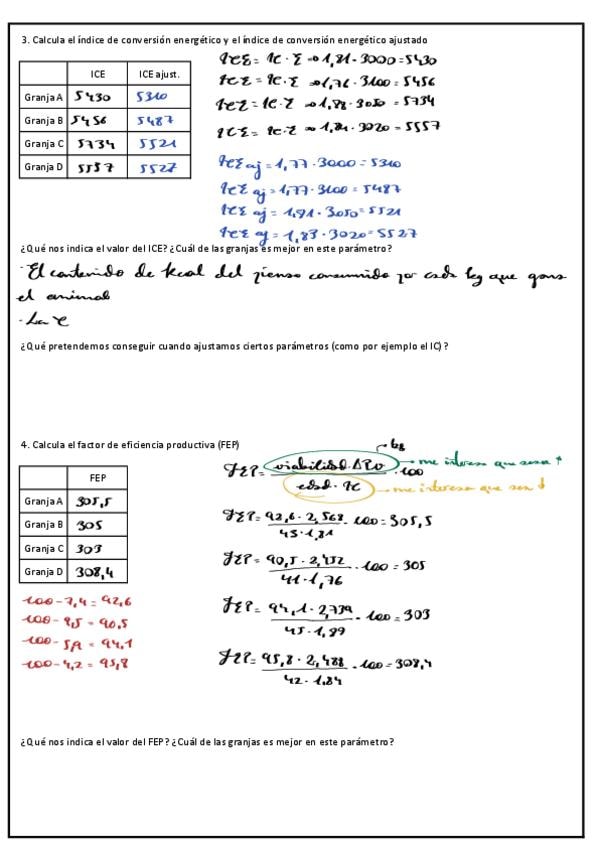 3. Calcula el índice de conversión energético y el índice de conversión energético ajustado
ICE ICE ajust.
Granja A 5430 5310
Granja B 5456 5487
Granja C 5734 5521
Granja D 5557 5527
ICE = IC · Σ → 1,81 · 3000 = 5430
ICE = IC · Σ → 1,76 · 3100 = 5456
ICE = IC · Σ → 1,88 · 3050 = 5734
ICE = IC · Σ → 1,84 · 3020 = 5557
ICE aj = 1,77 · 3000 = 5310
ICE aj = 1,77 · 3100 = 5487
ICE aj = 1,81 · 3050 = 5521
ICE aj = 1,83 · 3020 = 5527
¿Qué nos indica el valor del ICE? ¿Cuál de las granjas es mejor en este parámetro?
· El contenido de kcal del pienso consumido por cada kg que gana
el animal
· La C
¿Qué pretendemos conseguir cuando ajustamos ciertos parámetros (como por ejemplo el IC) ?
4. Calcula el factor de eficiencia productiva (FEP)
FEP
Granja A 305,5
Granja B 305
Granja C 303
Granja D 308,4
100 - 7,4 = 92,6
100 - 9,5 = 90,5
100 - 5,9 = 94,1
100 - 4,2 = 95,8
kg
FEP = viabilidad · ΔPV / edad · IC · 100
me interesa que sean ↑
me interesa que sean ↓
FEP = 92,6 · 2,568 / 43 · 1,81 · 100 = 305,5
FEP = 90,5 · 2,432 / 41 · 1,76 · 100 = 305
FEP = 94,1 · 2,739 / 45 · 1,89 · 100 = 303
FEP = 95,8 · 2,488 / 42 · 1,84 · 100 = 308,4
¿Qué nos indica el valor del FEP? ¿Cuál de las granjas es mejor en este parámetro?